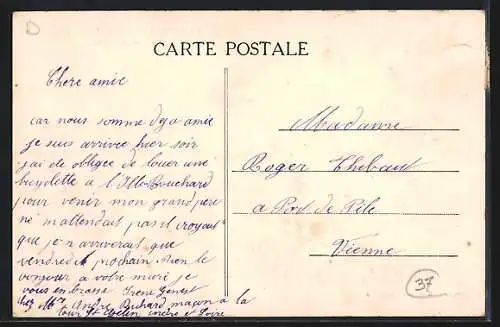 CARTE POSTALE
Chere amie
car nous somme deja amie
je suis arrivee hier soir
j'ai de obligee de louer une
bicyclette a l'Ille Bouchard
pour venir mon grand pere
ne m'attendait pas il croyait
que je n arriverait que
vendredi prochain rien le
bonjour a votre mari je
vous embrasse Irene Genest
chez Mr Andre Richard maçon a la
tour St Gelin indre et Loire
Madame
Roger Thebaut
a Port de Pile
Vienne
37